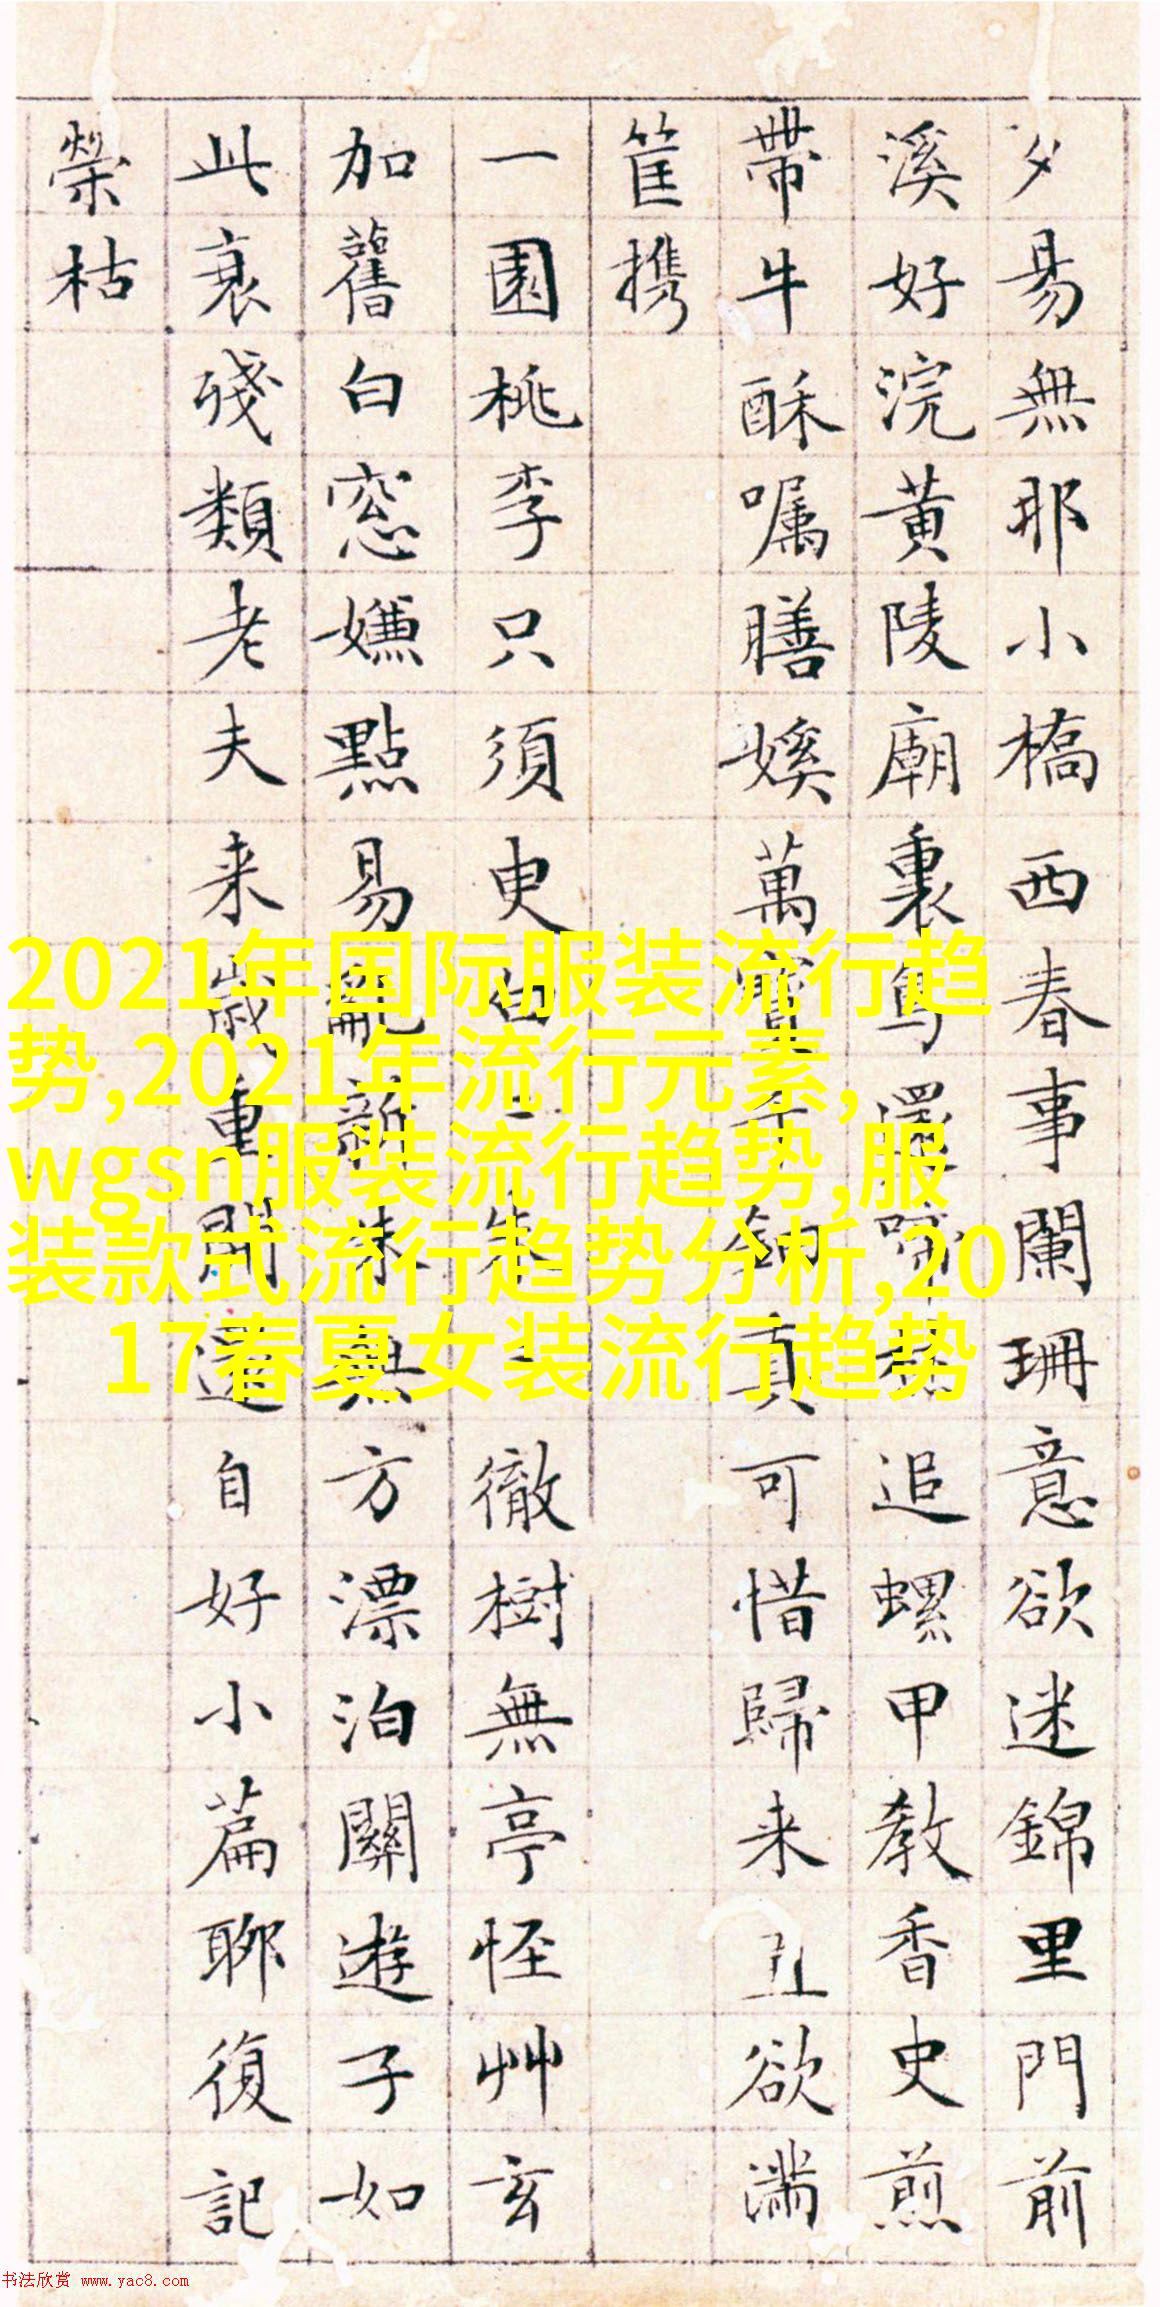 夕昜無耶小橋西春事闌珊意欲迷錦里門前
溪好浣黃陵廟裏鳥還啼追螺甲教香史煎
帶牛酥囑膳萬寶千鈿真可惜歸来丑欲滿
筐携
一園桃李只須臾白二朱二徹樹無亭怪艸玄
加舊白窓嫌點易亂新朱無方漂泊關遊子如
此衰殘類老夫来歲重開還自好小篇聊復記
榮枯
2021年国际服装流行趋
势,2021年流行元素,
wgsn服装流行趋势,服
装款式流行趋势分析,20
17春夏女装流行趋势
书法欣赏 www.yac8.com